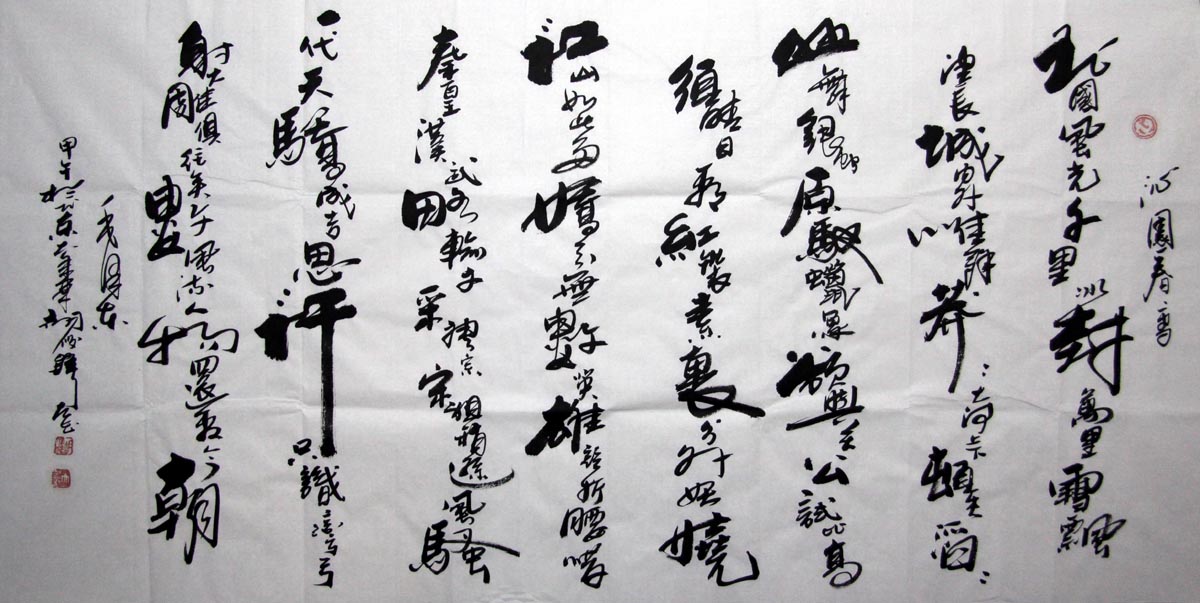 沁園春雪
北國風光千里冰封萬里雪飄
望長城內外唯餘莽：大河上下頓失滔：
山舞銀蛇原馳蠟象欲與天公試比高
須晴日看紅裝素裹分外妖嬈
江山如此多嬌引無數英雄競折腰惜
秦皇漢武略輸文采唐宗宋祖稍遜風騷
一代天驕成吉思汗只識彎弓
射大雕俱往矣數風流人物還看今朝
毛澤東
甲午